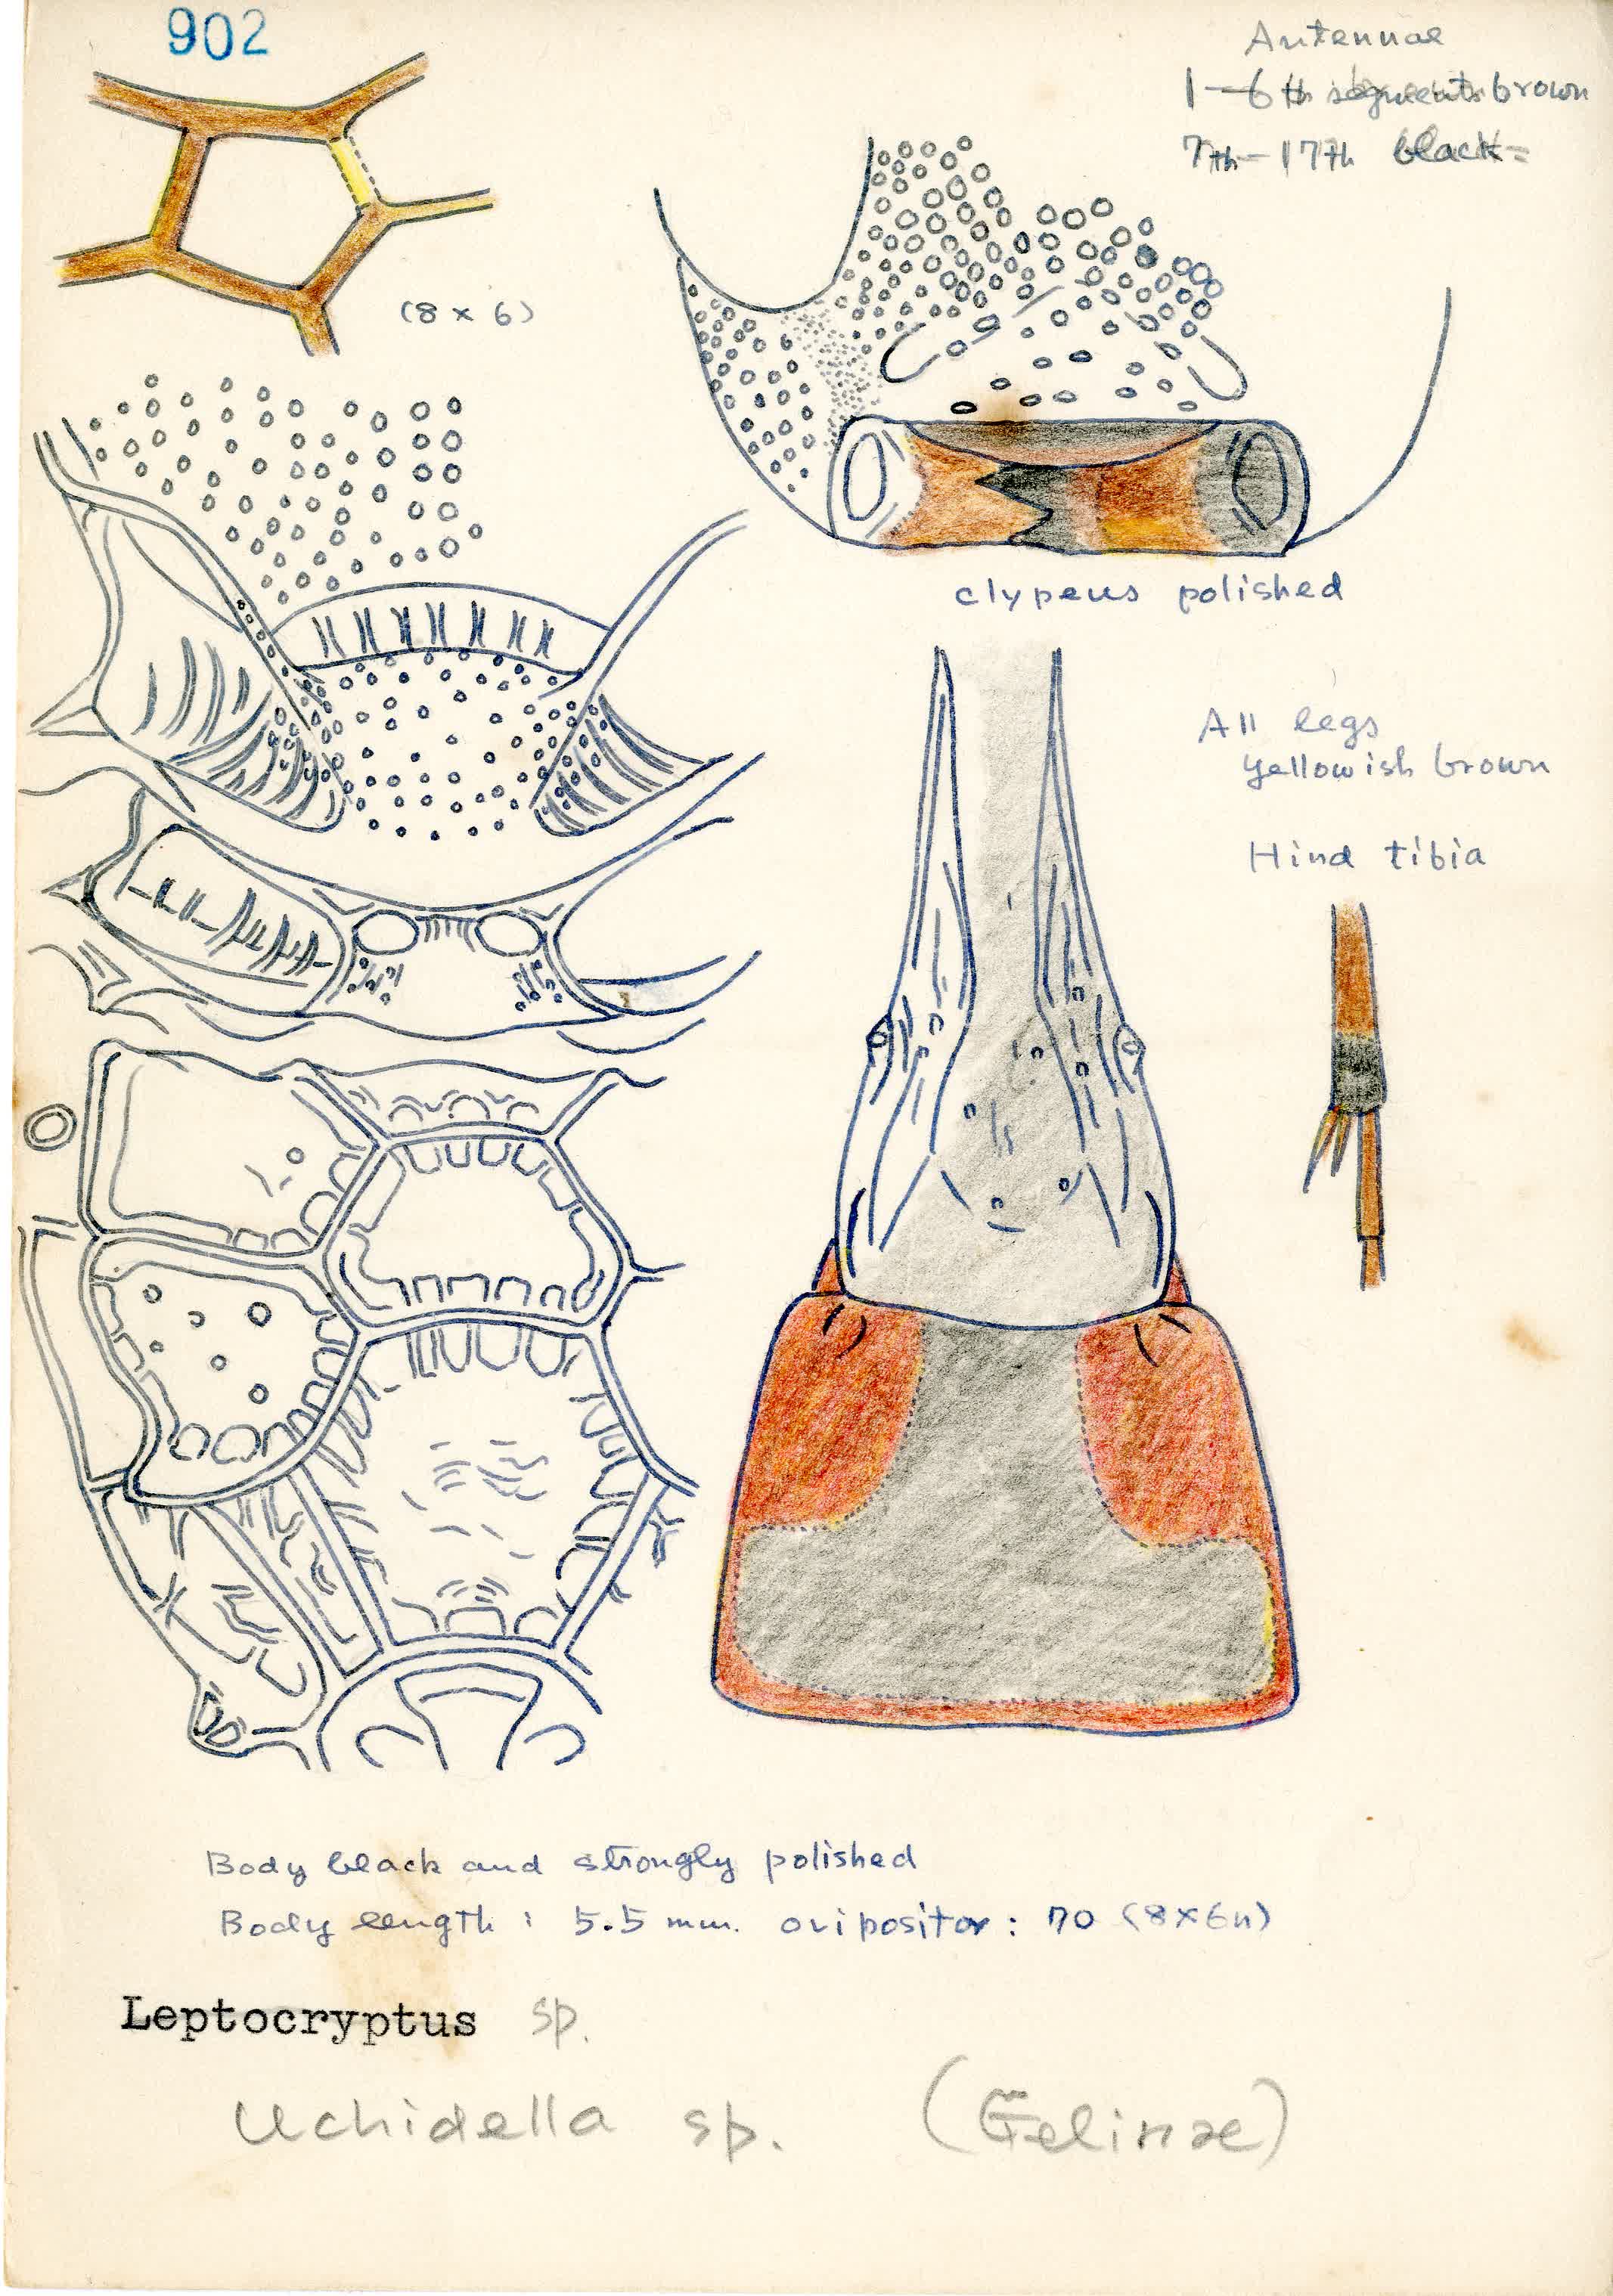 902
Antennae
1-6th segments brown
7th-17th black
(8 x 6)
clypeus polished
All legs
yellowish brown
Hind tibia
Body black and strongly polished
Body length : 5.5 mm. ovipositor : 70 (8x6n)
Leptocryptus sp.
Uchidella sp. (Gelinae)